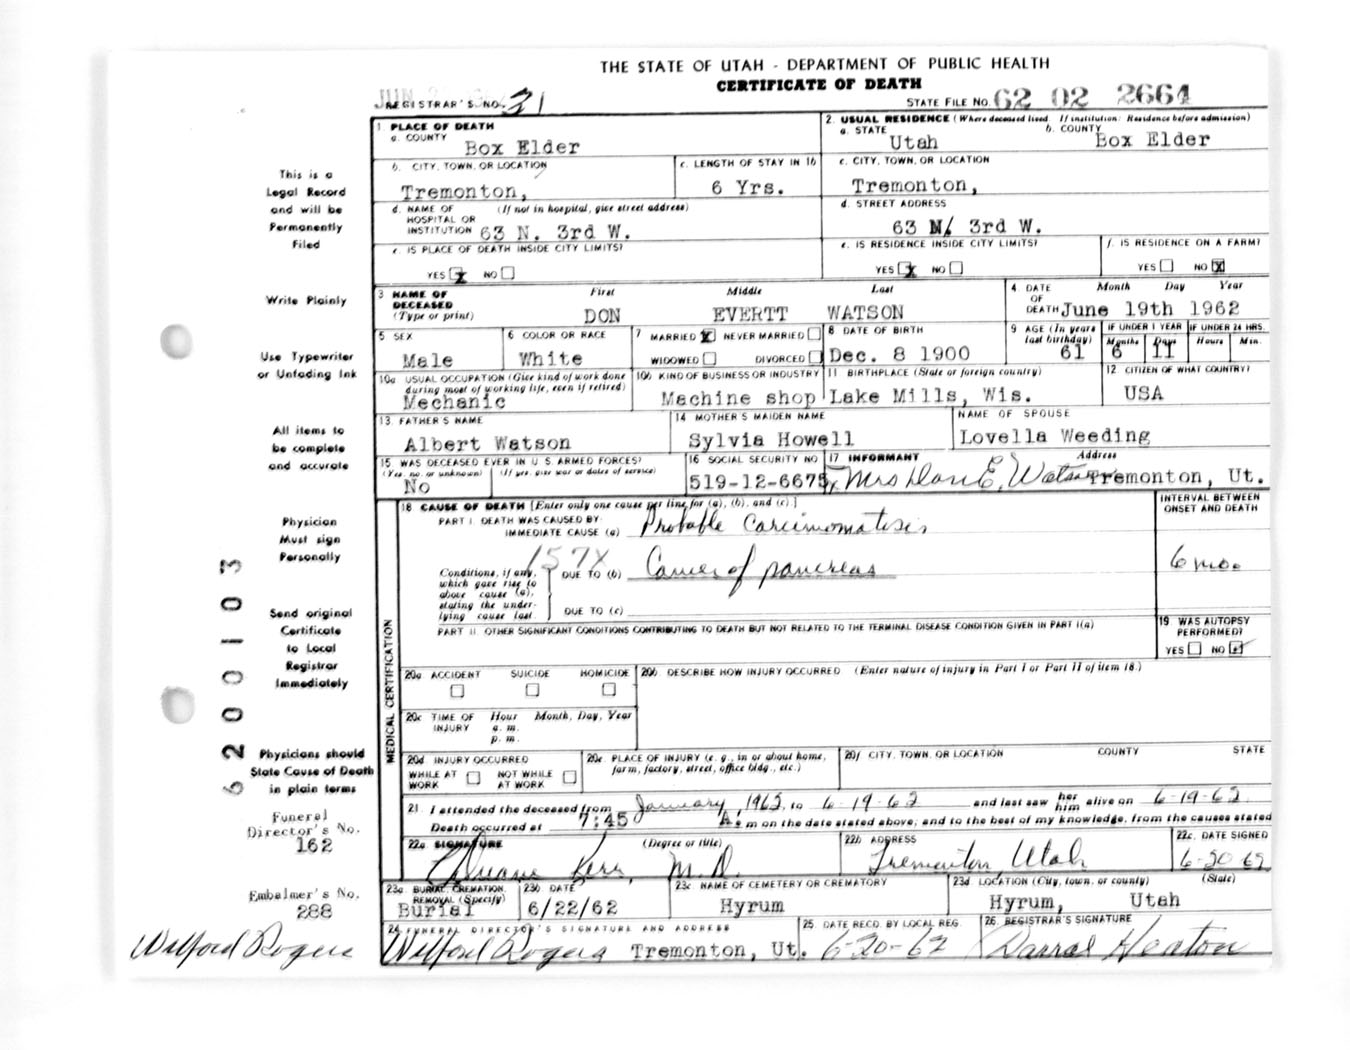 THE STATE OF UTAH - DEPARTMENT OF PUBLIC HEALTH
CERTIFICATE OF DEATH
JUN
REGISTRAR'S NO. 31
STATE FILE NO. 62 02 2664
1 PLACE OF DEATH
a. COUNTY
Box Elder
2. USUAL RESIDENCE (Where deceased lived. If institution: Residence before admission)
a. STATE
Utah
b. COUNTY
Box Elder
b. CITY, TOWN, OR LOCATION
Tremonton,
c. LENGTH OF STAY IN 1b
6 Yrs.
c. CITY, TOWN, OR LOCATION
Tremonton,
d. NAME OF HOSPITAL OR INSTITUTION (If not in hospital, give street address)
63 N. 3rd W.
d. STREET ADDRESS
63 N. 3rd W.
e. IS PLACE OF DEATH INSIDE CITY LIMITS?
YES X NO
e. IS RESIDENCE INSIDE CITY LIMITS?
YES X NO
f. IS RESIDENCE ON A FARM?
YES NO X
3 NAME OF DECEASED (Type or print)
First Middle Last
DON EVERTT WATSON
4. DATE OF DEATH
Month Day Year
June 19th 1962
5 SEX
Male
6 COLOR OR RACE
White
7 MARRIED X NEVER MARRIED
WIDOWED DIVORCED
8 DATE OF BIRTH
Dec. 8 1900
9 AGE (In years last birthday)
61
IF UNDER 1 YEAR
Months Days
6 11
IF UNDER 24 HRS.
Hours Min.
10a USUAL OCCUPATION (Give kind of work done during most of working life, even if retired)
Mechanic
10b KIND OF BUSINESS OR INDUSTRY
Machine shop
11 BIRTHPLACE (State or foreign country)
Lake Mills, Wis.
12 CITIZEN OF WHAT COUNTRY?
USA
13. FATHER'S NAME
Albert Watson
14 MOTHER'S MAIDEN NAME
Sylvia Howell
NAME OF SPOUSE
Lovella Weeding
15 WAS DECEASED EVER IN U.S. ARMED FORCES?
(Yes, no, or unknown) (If yes, give war or dates of service)
No
16 SOCIAL SECURITY NO
519-12-6675
17 INFORMANT Address
x Mrs Don E. Watson Tremonton, Ut.
18 CAUSE OF DEATH [Enter only one cause per line for (a), (b), and (c).]
INTERVAL BETWEEN ONSET AND DEATH
PART I. DEATH WAS CAUSED BY:
IMMEDIATE CAUSE (a) Probable Carcinomatosis
157X
Conditions, if any, which gave rise to above cause (a), stating the underlying cause last.
DUE TO (b) Cancer of pancreas
6 mo.
DUE TO (c)
PART II. OTHER SIGNIFICANT CONDITIONS CONTRIBUTING TO DEATH BUT NOT RELATED TO THE TERMINAL DISEASE CONDITION GIVEN IN PART I(a)
19. WAS AUTOPSY PERFORMED?
YES NO
MEDICAL CERTIFICATION
20a ACCIDENT SUICIDE HOMICIDE
20b. DESCRIBE HOW INJURY OCCURRED (Enter nature of injury in Part I or Part II of item 18.)
20c TIME OF INJURY Hour Month, Day, Year
a. m.
p. m.
20d INJURY OCCURRED
WHILE AT WORK NOT WHILE AT WORK
20e. PLACE OF INJURY (e. g., in or about home, farm, factory, street, office bldg., etc.)
20f CITY, TOWN, OR LOCATION COUNTY STATE
21. I attended the deceased from January, 1962 to 6-19-62 and last saw her him alive on 6-19-62.
Death occurred at 7:45 A. m on the date stated above; and to the best of my knowledge, from the causes stated
22a SIGNATURE (Degree or title)
Duane Kerr, M.D.
22b ADDRESS
Tremonton, Utah
22c. DATE SIGNED
6-20-62
23a BURIAL, CREMATION, REMOVAL (Specify)
Burial
23b DATE
6/22/62
23c NAME OF CEMETERY OR CREMATORY
Hyrum
23d LOCATION (City, town, or county) (State)
Hyrum, Utah
24 FUNERAL DIRECTOR'S SIGNATURE AND ADDRESS
Wilford Rogers Tremonton, Ut.
25. DATE RECD. BY LOCAL REG.
6-20-62
26. REGISTRAR'S SIGNATURE
Darral Heaton
This is a
Legal Record
and will be
Permanently
Filed
Write Plainly
Use Typewriter
or Unfading Ink
All items to
be complete
and accurate
Physician
Must sign
Personally
Send original
Certificate
to Local
Registrar
Immediately
62 00103
Physicians should
State Cause of Death
in plain terms
Funeral
Director's No.
162
Embalmer's No.
288
Wilford Rogers